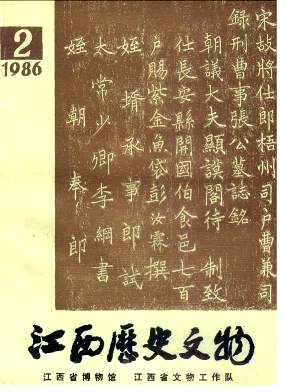 2
1986
宋故將仕郎梧州司戶曹兼司
錄刑曹事張公墓誌銘
朝議大夫顯謨閣待 制致
仕長安縣開國伯食邑七百
戶賜紫金魚袋彭汝霖撰
姪壻承事郎試
太常少卿李綱書
姪朝奉郎
江西歷史文物
江西省博物馆 江西省文物工作队